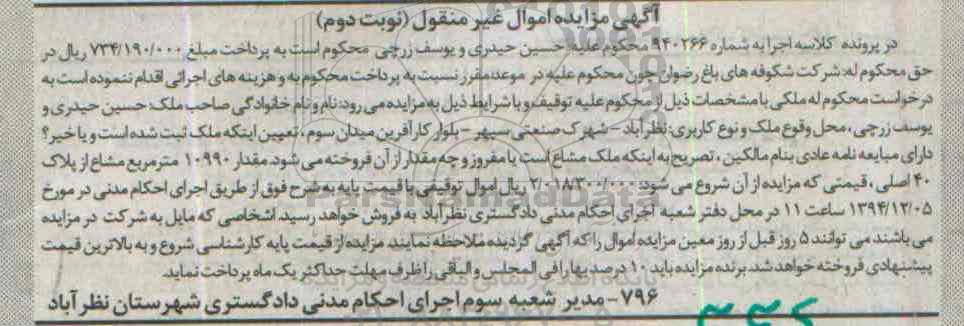 آگهی مزایده اموال غیر منقول (نوبت دوم)
در پرونده کلاسه اجرا به شماره ۹۴۰۲۶۶ محکوم علیه: حسین حیدری و یوسف زرچی محکوم است به پرداخت مبلغ ۷۳۴/۱۹۰/۰۰۰ ریال در
حق محکوم له: شرکت شکوفه های باغ رضوان چون محکوم علیه در موعد مقرر نسبت به پرداخت محکوم به و هزینه های اجرائی اقدام ننموده است به
درخواست محکوم له ملکی با مشخصات ذیل از محکوم علیه توقیف و با شرایط ذیل به مزایده می رود: نام و نام خانوادگی صاحب ملک: حسین حیدری و
یوسف زرچی، محل وقوع ملک و نوع کاربری: نظرآباد – شهرک صنعتی سپهر – بلوار کارآفرین میدان سوم، تعیین اینکه ملک ثبت شده است و یا خیر؟
دارای مبایعه نامه عادی بنام مالکین، تصریح به اینکه ملک مشاع است یا مفروز و چه مقدار از آن فروخته می شود. مقدار ۱۰۹۹۰ مترمربع مشاع از پلاک
۴۰ اصلی، قیمتی که مزایده از آن شروع می شود: ۲/۰۱۸/۳۰۰/۰۰۰ ریال اموال توقیفی با قیمت پایه به شرح فوق از طریق اجرای احکام مدنی در مورخ
۱۳۹۴/۱۲/۰۵ ساعت ۱۱ در محل دفتر شعبه اجرای احکام مدنی دادگستری نظرآباد به فروش خواهد رسید. اشخاصی که مایل به شرکت در مزایده
می باشند می توانند ۵ روز قبل از روز معین مزایده اموال را که آگهی گردیده ملاحظه نمایند. مزایده از قیمت پایه کارشناسی شروع و به بالاترین قیمت
پیشنهادی فروخته خواهد شد. برنده مزایده باید ۱۰ درصد بها را فی المجلس و الباقی را ظرف مهلت حداکثر یک ماه پرداخت نماید.
۷۹۶- مدیر شعبه سوم اجرای احکام مدنی دادگستری شهرستان نظرآباد
ParsNamadData